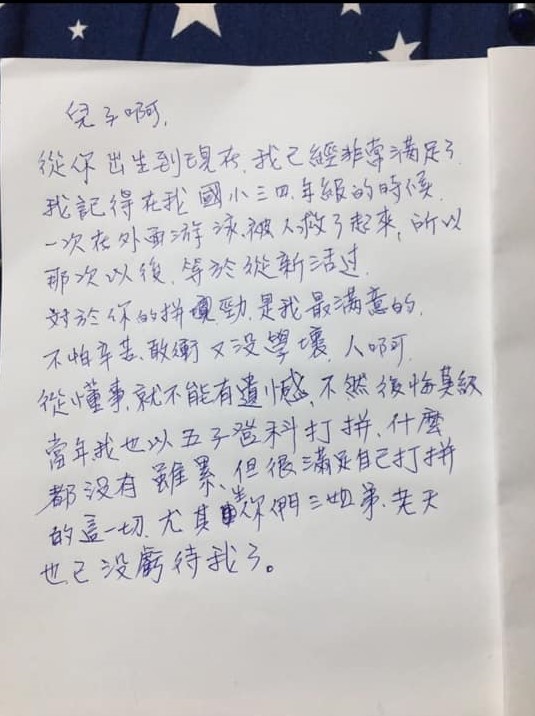 兒子啊,
從你出生到現在,我已經非常滿足了.
我記得在我國小三四年級的時候,
一次在外面游泳,被人救了起來,所以
那次以後,等於從新活过.
對於你的拼勁,是我最滿意的,
不怕辛苦、敢衝又没學壞,人啊,
從懂事,就不能有遺憾,不然後悔莫級
當年我也以五子登科打拼、什麼
都没有雖累、但很滿足自己打拼
的這一切、尤其生你們三姐弟、老天
也已没虧待我了。